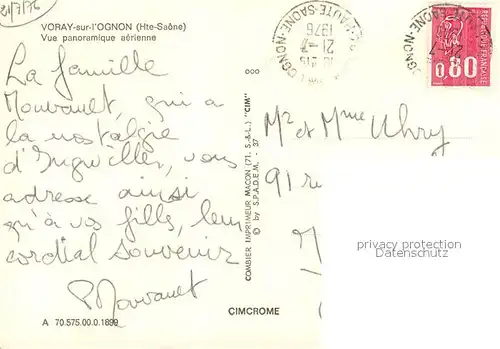 21/7/76
VORAY-sur-l'OGNON (Hte-Saône)
Vue panoramique aérienne
La famille
Mourault, qui a
la nostalgie
d'Ingwiller, vous
adresse ainsi
qu'à vos filles, leur
cordial souvenir
Mourault
A 70.575.00.0.1899
COMBIER IMPRIMEUR MACON (71. S.-&-L.) "CIM"
© by S.P.A.D.E.M. - 37
CIMCROME
HAUTE-SAONE
21-7
1976
REPUBLIQUE FRANCAISE
0.80
Mr et Mme Uhry
91 r
privacy protection